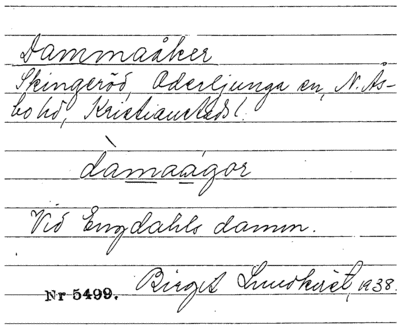 Dammaåker
Skingeröd, Oderljunga sn, N. Ås-
bo hd, Kristianstads l.
dàmaágor
Vid Engdahls damm.
Birgit Lundkvist, 1938.
Nr 5499.